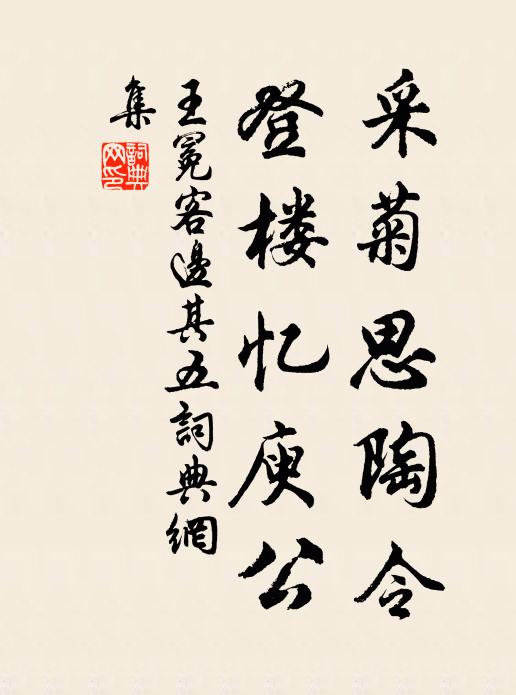 采菊思陶令
登楼忆庾公
王冕客边其五詞典網
集
詞典網印